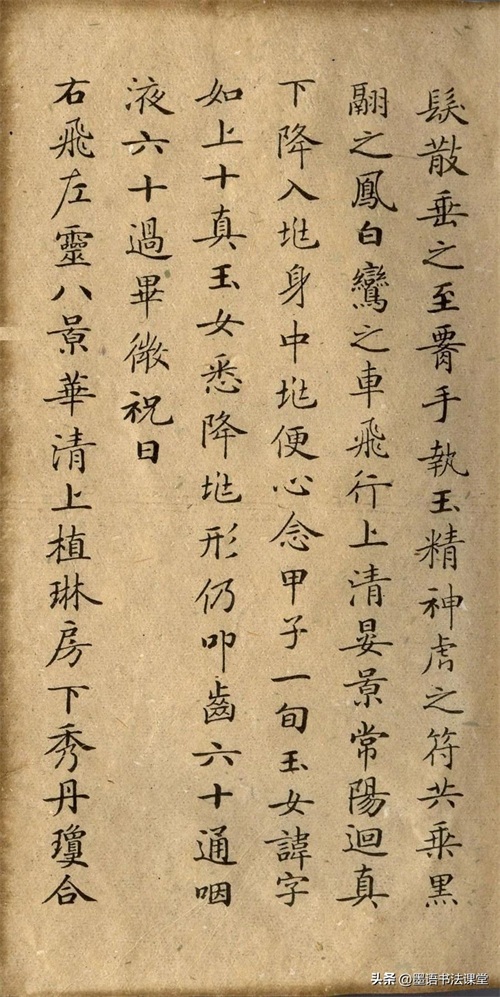 髮散垂之至𦝫手執玉精神虎之符共乘黑
翮之鳳白鸞之車飛行上清晏景常陽迴真
下降入垗身中垗便心念甲子一旬玉女諱字
如上十真玉女悉降垗形仍叩齒六十通咽
液六十過畢微祝曰
右飛左靈八景華清上植琳房下秀丹瓊合
头条 @墨语书法课堂